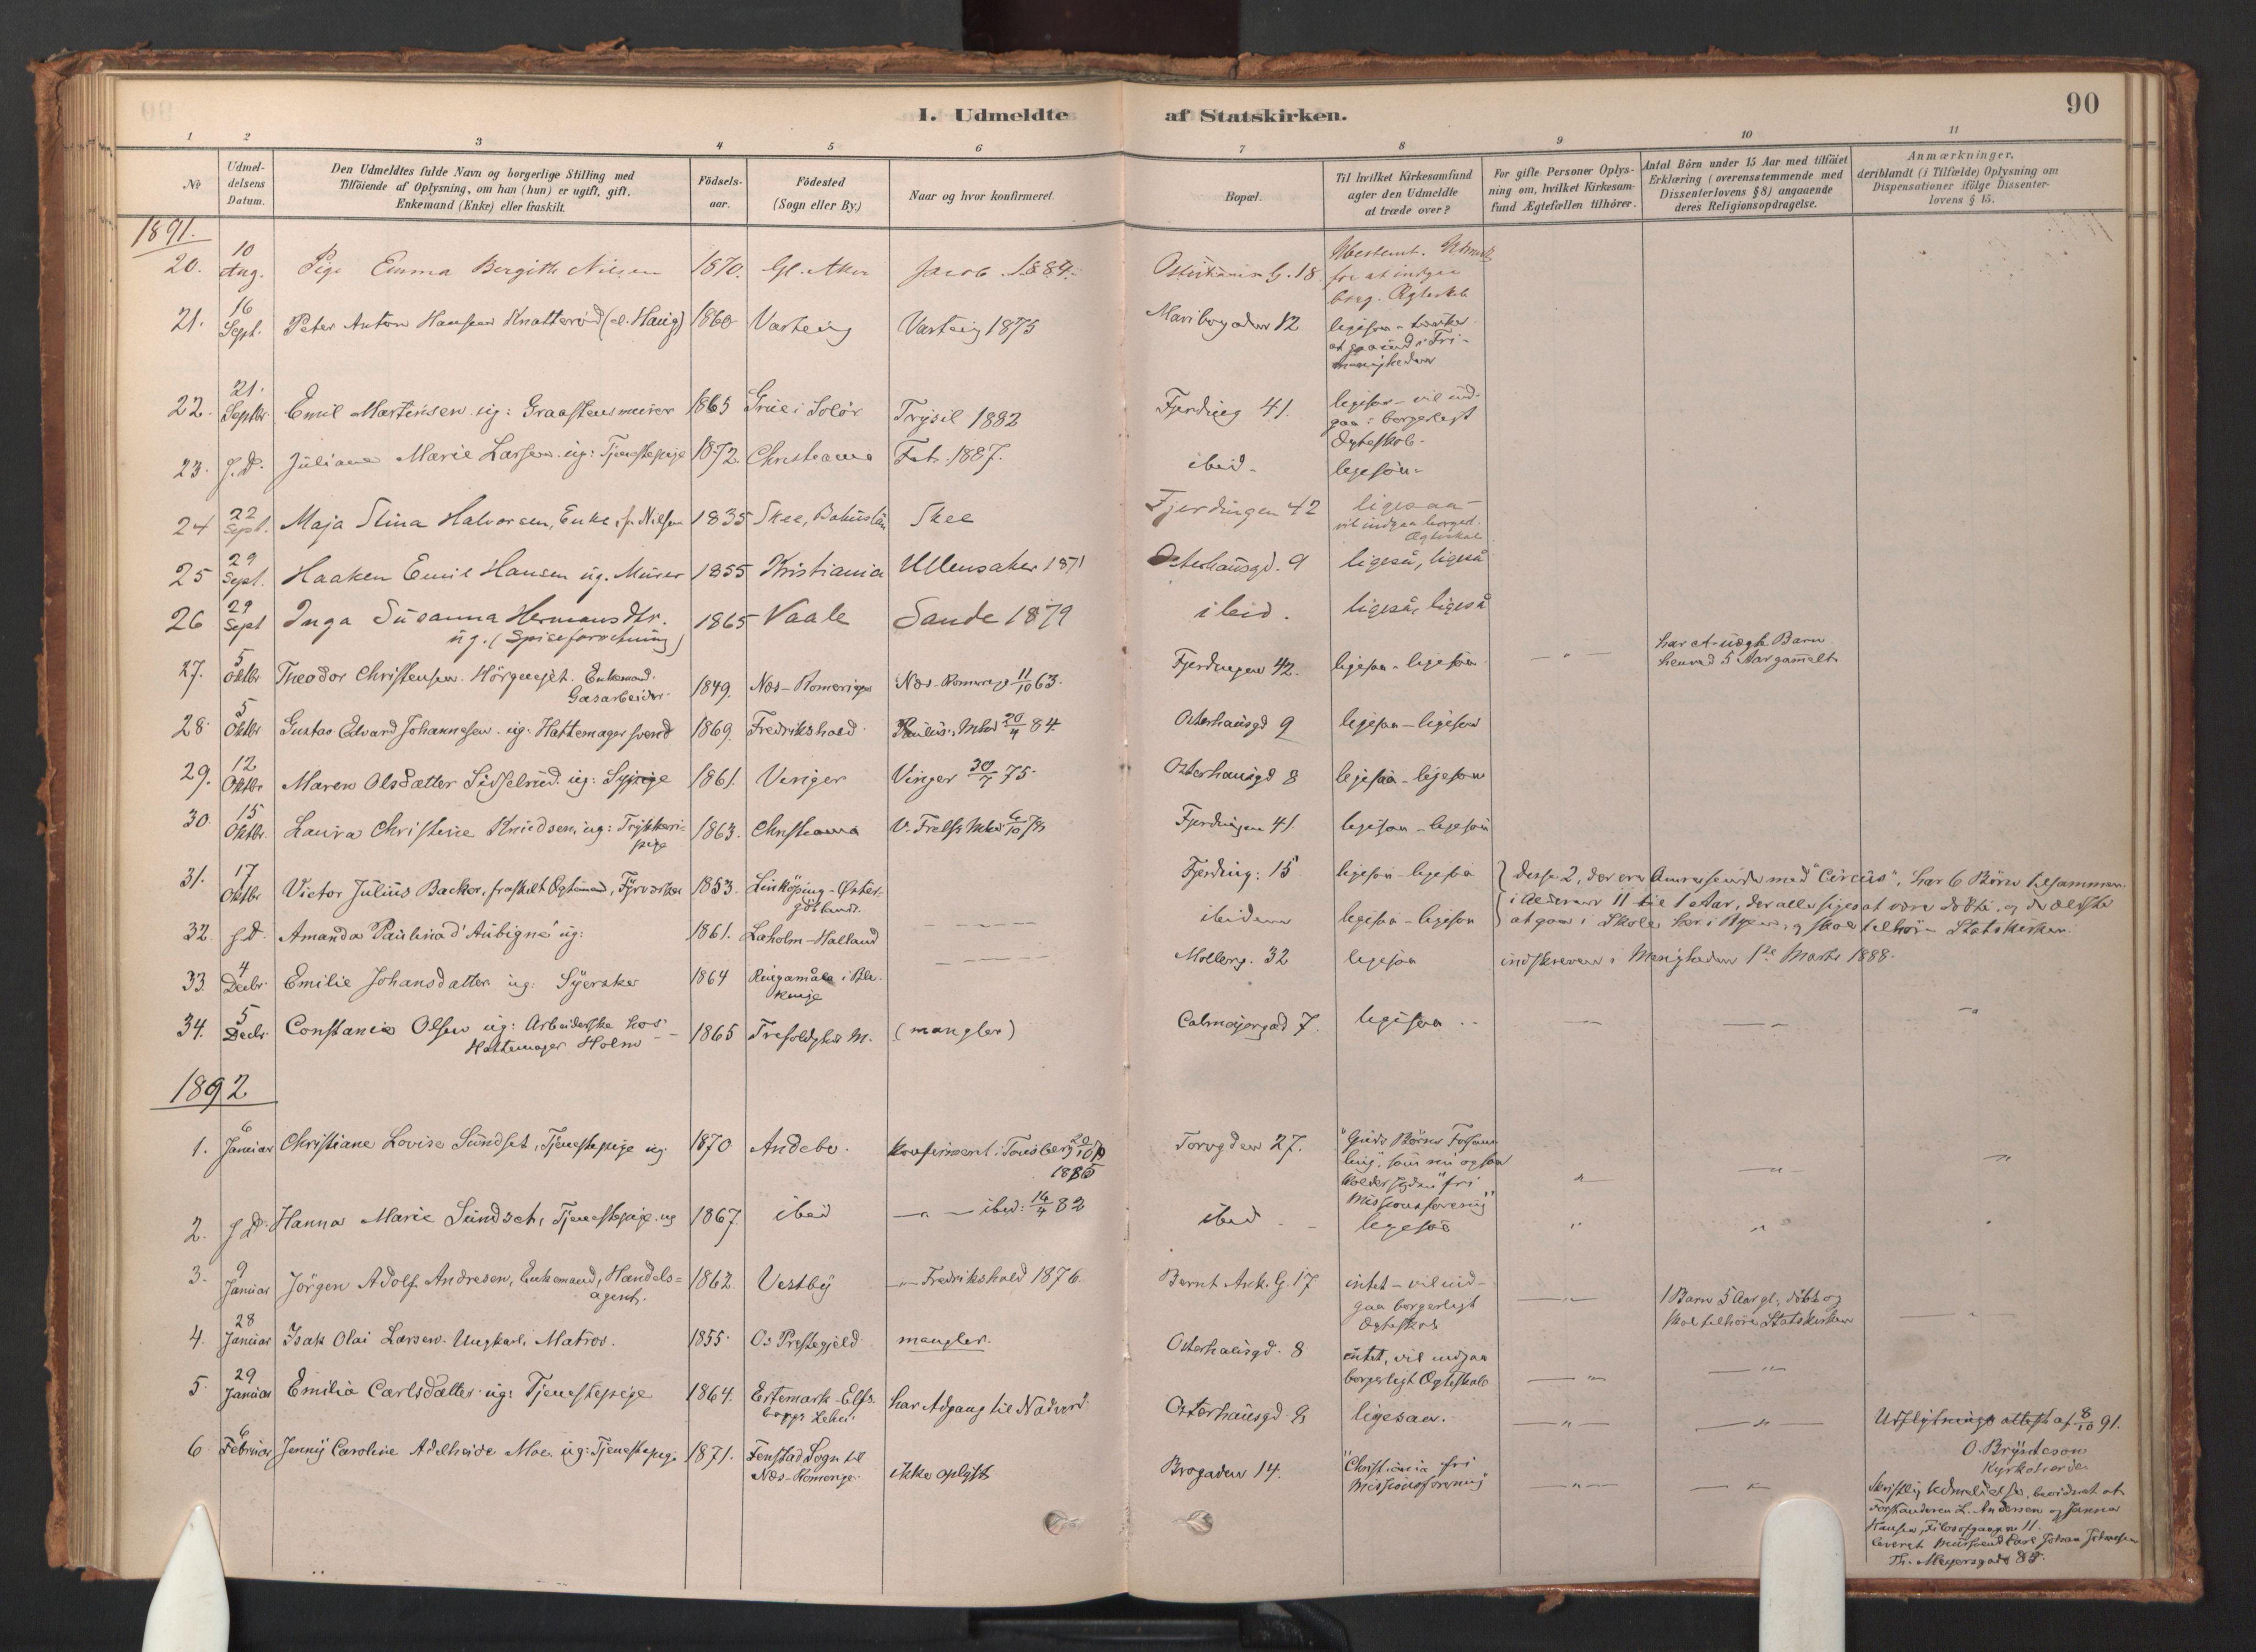 I. Udmeldte af Statskirken. 90
1 2 3 4 5 6 7 8 9 10 11
No
Udmel-
delsens
Datum.
Den Udmeldtes fulde Navn og borgerlige Stilling med
Tilföiende af Oplysning, om han (hun) er ugift, gift,
Enkemand (Enke) eller fraskilt.
Födsels-
aar.
Födested
(Sogn eller By.)
Naar og hvor konfirmeret.
Bopæl.
Til hvilket Kirkesamfund
agter den Udmeldte
at træde over?
For gifte Personer Oplys-
ning om, hvilket Kirkesam-
fund Ægtefællen tilhörer.
Antal Börn under 15 Aar med tilföiet
Erklæring (overensstemmende med
Dissenterlovens § 8) angaaende
deres Religionsopdragelse.
Anmærkninger,
deriblandt (i Tilfælde) Oplysning om
Dispensationer ifölge Dissenter-
lovens § 15.
1891.
20. 10 Aug. Pige Emma Bergithe Nilsen 1870. Gl. Aker Jacob 1884. G. 18 Ubestemt.
for at indgaa
borg. Ægteskab
21. 16 Sept. Peter Anton Hansen Knatterød (el. Haug) 1860 Varteig Varteig 1875 Maribogaden 12 ligesaa - tænker
at gaa ind i Fri-
menigheden
22. 21. Septbr. Emil Martinsen ug: Graastensmurer 1865 Grue i Solör Trysil 1882 Fjerding 41. ligesaa - vil ind-
gaa i borgerligt
Ægteskab.
23. s.D. Juliane Marie Larsen ug: Tjenestepige 1872. Christiania 1887. ibid. ligesaa
24 22 Sept. Maja Stina Halvorsen, Enke, f. Nilsen 1835 Skee, Bohuslän Skee Fjerdingen 42 ligesaa
vil indgaa borgerl.
Ægteskab
25 29 Sept. Haaken Emil Hansen ug. Murer 1855 Kristiania Ullensaker 1871 Osterhausgd. 9 ligeså, ligeså
26 29 Sept Inga Susanna Hermansdtr. 1865 Vaale Sande 1879 ibid. ligeså, ligeså
ug. (Spiseforretning)
27. 5 Oktbr Theodor Christensen Enkemand. 1849. Næs-Romerige Næs-Romerige 11/10 63. Fjerdingen 42. ligesaa - ligesaa — " — har et uægte Barn
Gasarbeider. henved 5 Aar gammelt
28. 5 Oktbr Gustav Edvard Johannesen. ug: Hattemagersvend 1869. Fredrikshald. Paulus Mhed 20/4 84. Osterhausgd 9 ligesaa - ligesaa
29. 12 Oktbr Maren Olsdatter Sidselrud. ug: Sypige 1861. Vinger Vinger 30/7 75. Osterhausgd 8 ligesaa - ligesaa
30. 15 Oktbr. Laura Christine Knudsen, ug: Trykkeri- 1863. Christiania V. Frelsers Mhed Fjerdingen 41. ligesaa - ligesaa
pige
31. 17 Oktbr Victor Julius Backer, fraskilt Ægtemand, Fyrværker 1853. Linköping - Öster- Fjerding: 15 ligesaa - ligesaa disse 2, der ere med "Circus", har 6 Börn tilsammen
götland. i Alderen 11 til 1 Aar, der alle siges at være döbte, og de ældste
32. s.D. Amanda Paulina d'Aubigné ug: 1861. Laholm - Halland ibidem ligesaa - ligesaa at gaa i Skole her i Byen og skal tilhöre Statskirken.
33. 4 Decbr. Emilie Johansdatter ug: Syerske 1864 Ringamåla i Ble- Mollerg. 32 ligesaa indskreven i Menigheden 1ste Marts 1888.
kinge
34. 5 Decbr. Constance Olsen ug: Arbeiderske hos 1865 Trefoldighed M. (mangler) Calmeyergad 7. ligesaa
Hattemager Holm
1892
1. 6 Januar Christiane Lovise Sundset, Tjenestepige ug. 1870 Andebu. konfirmeret i Tønsberg Torvgaden 27. "Guds Börns Forsam-
ling", som nu ogsaa
1885 kalder sig den "fri
Missionsforening"
2. s.D. Hanna Marie Sundset, Tjenestepige. ug 1867. ibid — " — ibid: 14/4 82 ibid ligesaa
3. 9 Januar Jörgen Adolf Andresen, Enkemand, Handels- 1862. Vestby — " — Fredrikshald 1876. Bernt Ank. G. 17 intet - vil ind- 1 Barn 5 Aar gl., döbt og
agent. gaa borgerligt skal tilhöre Statskirken
Ægteskab
4. 28 Januar Isak Olai Larsen. Ungkarl, Matros. 1855. Os Prestegjeld mangler. Osterhausgd. 8 intet, vil indgaa
borgerligt Ægteskab
5. 29 Januar Emilia Carlsdatter ug: Tjenestepige 1864. har Adgang til Nadverd. Osterhausgd. 9 ligesaa. Udflytningsattest af 8/10 91.
O. Brynteson
Kyrkoherde
6 6 Februar Jenny Caroline Adelheide Moe. ug: Tjenestepige 1871. Fenstad Sogn til ikke oplyst Brogaden 14. "Christiania fri
Næs-Romerige Missionsforening"
Skriftlig Udmeldelse, bevidnet af
Forstanderen L. Andersen og Janna
Hansen, Filosofgangen 11.
leveret Carl Johan
Th. Meyersgade 85.